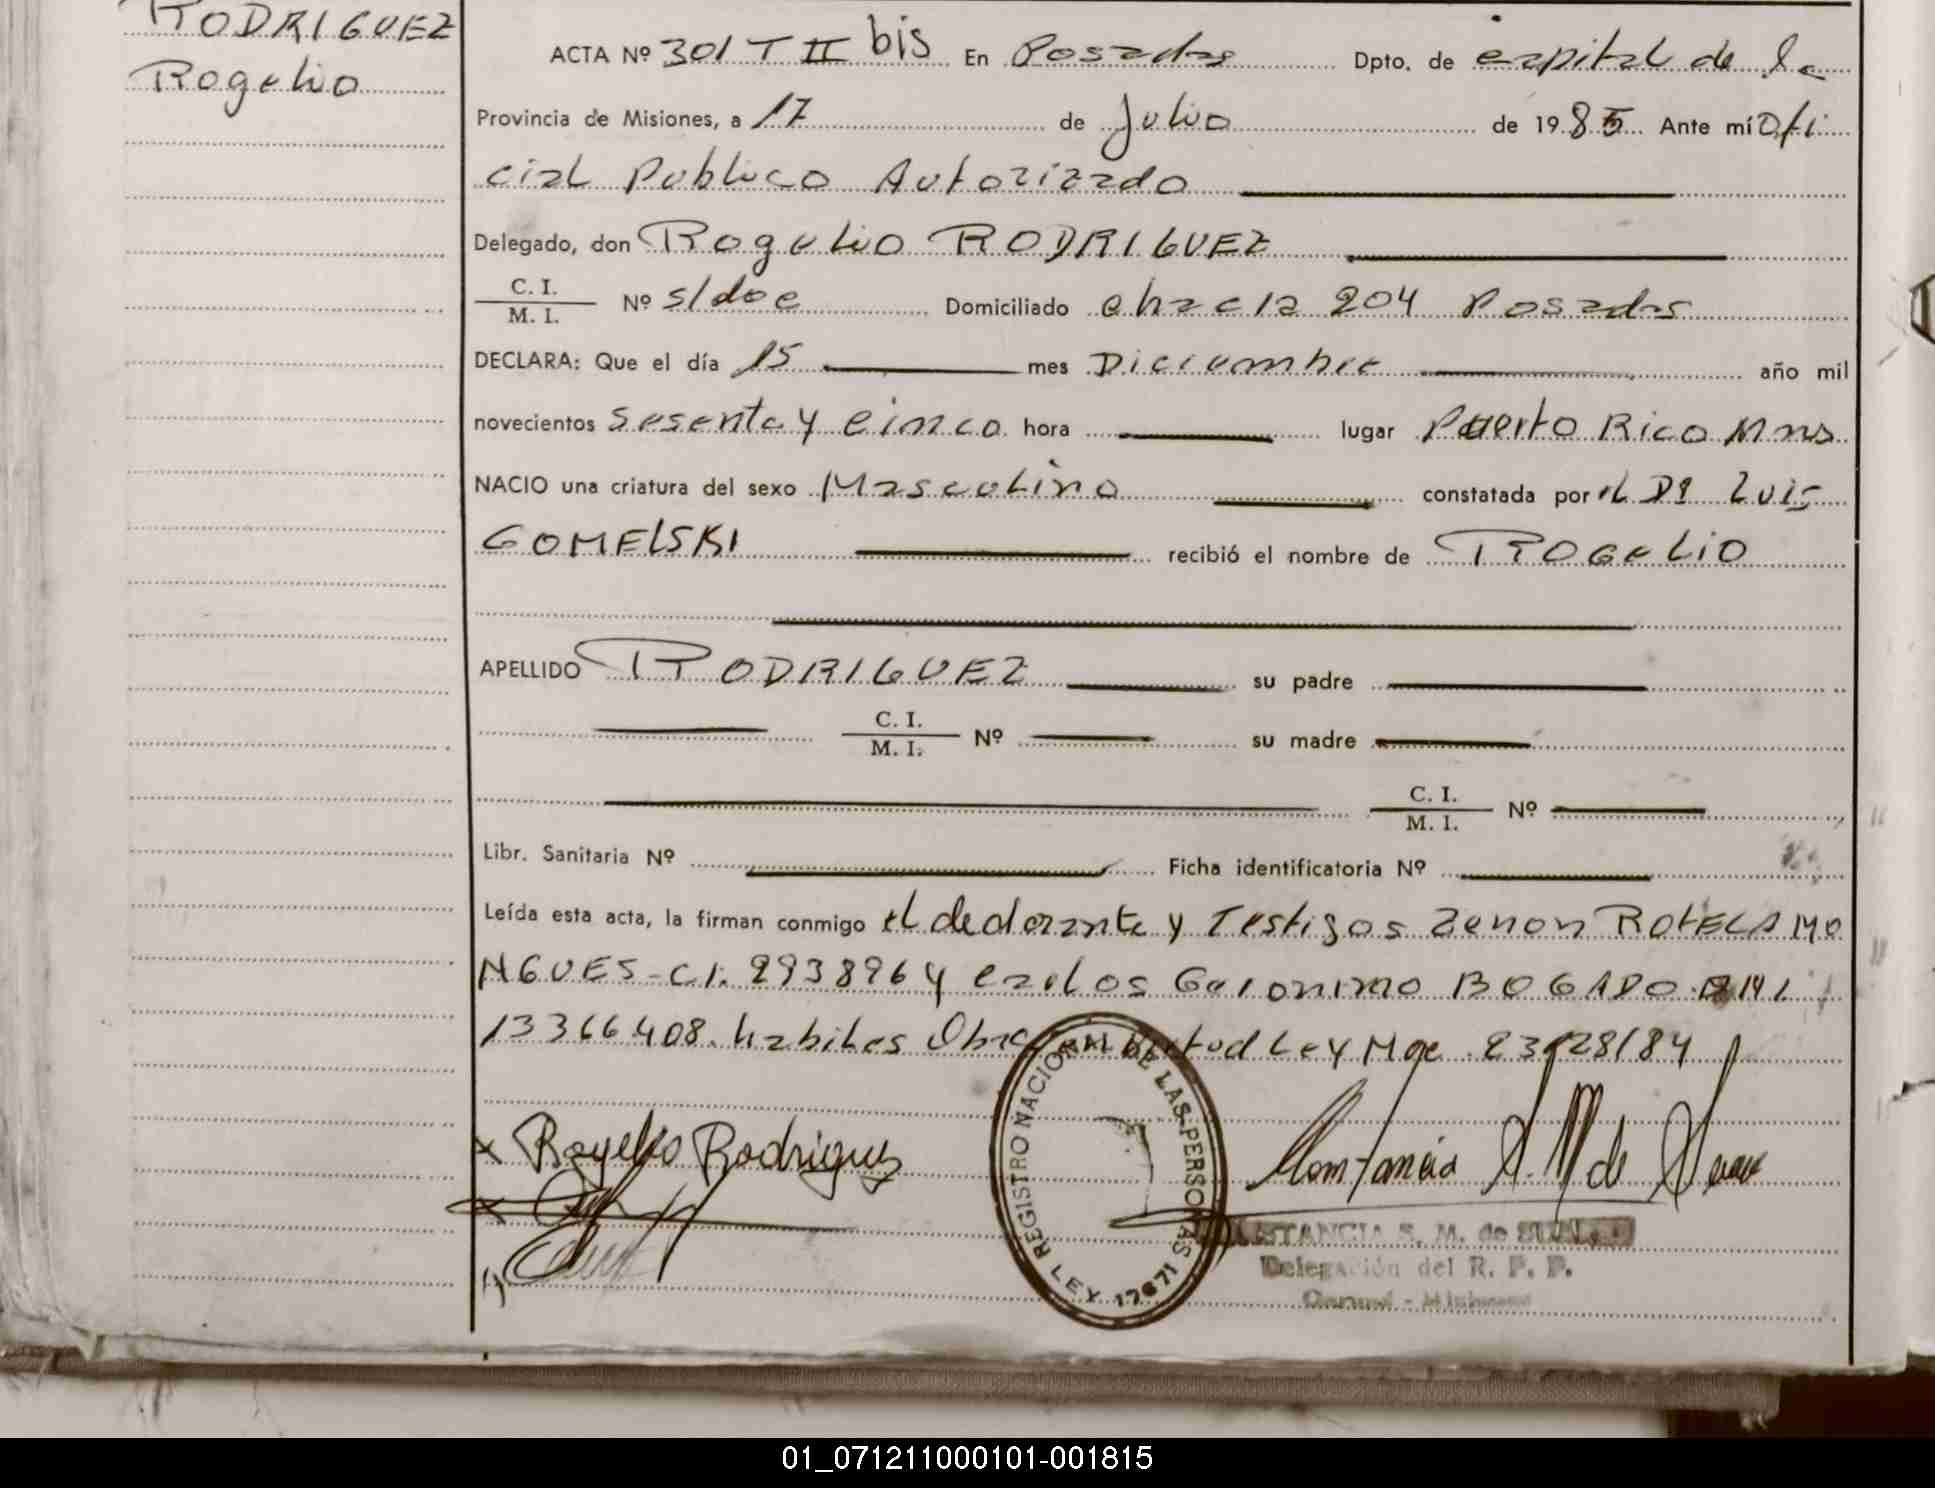 RODRIGUEZ
Rogelio
ACTA Nº 301 T II bis En Posadas Dpto. de capital de la
Provincia de Misiones, a 17 de Julio de 1985 Ante mí Ofi
cial Publico Autorizado
Delegado, don Rogelio RODRIGUEZ
C. I.
M. I. Nº s/doc Domiciliado chacra 204 Posadas
DECLARA: Que el día 15 mes Diciembre año mil
novecientos sesenta y cinco hora lugar Puerto Rico Mns
NACIO una criatura del sexo Masculino constatada por el Dr Luis
GOMELSKI recibió el nombre de ROGELIO
APELLIDO RODRIGUEZ su padre
C. I.
M. I. Nº su madre
C. I.
M. I. Nº
Libr. Sanitaria Nº Ficha identificatoria Nº
Leída esta acta, la firman conmigo el declarante y Testigos Zenon ROTELA MO
NGUES - CI. 293896 y Carlos Geronimo BOGADO MI
13366408. habiles Ley
Rogelio Rodriguez
REGISTRO NACIONAL DE LAS PERSONAS
LEY 17671
Constancia S. M. de
CONSTANCIA S. M. de
Delegación del R. P. P.
01_071211000101-001815